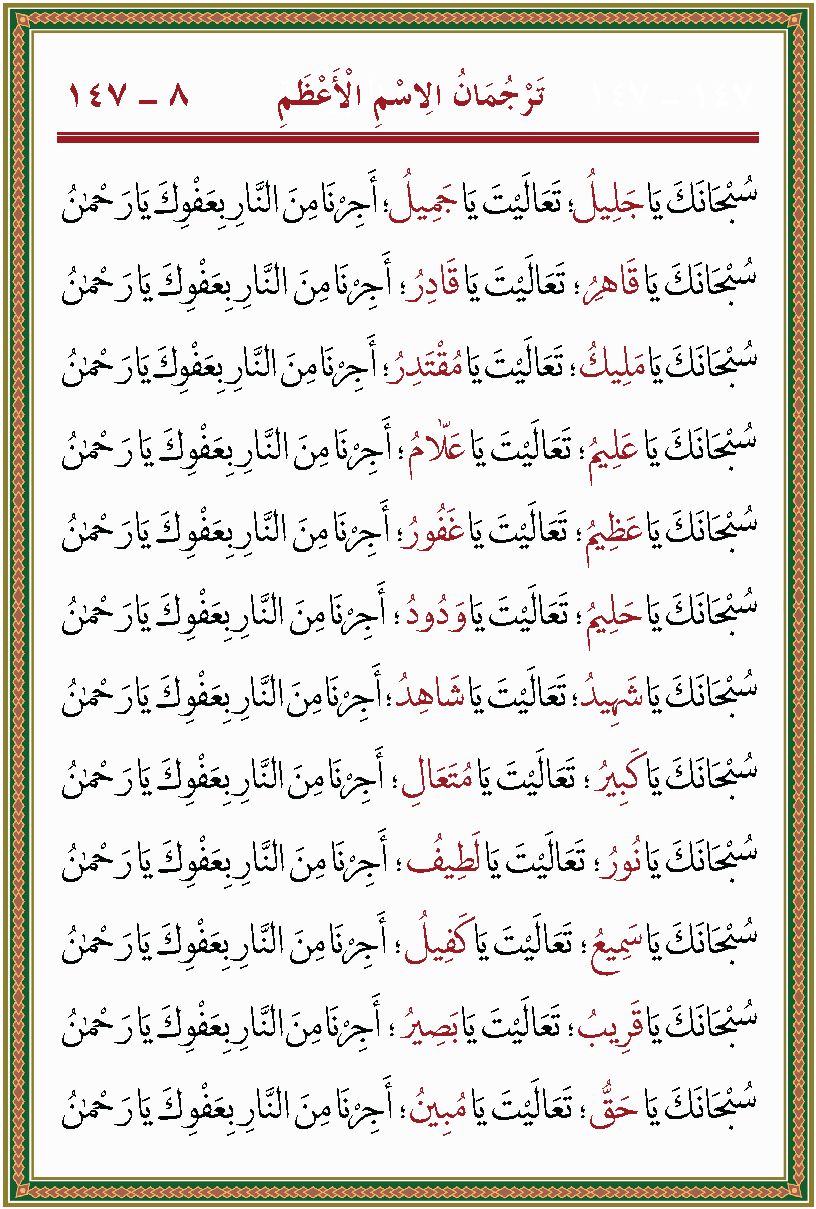 تَرْجُمَانُ الِاسْمِ الْأَعْظَمِ ٨ – ١٤٧
سُبْحَانَكَ يَا جَلِيلُ؛ تَعَالَيْتَ يَا جَمِيلُ؛ أَجِرْنَا مِنَ النَّارِ بِعَفْوِكَ يَا رَحْمٰنُ
سُبْحَانَكَ يَا قَاهِرُ؛ تَعَالَيْتَ يَا قَادِرُ؛ أَجِرْنَا مِنَ النَّارِ بِعَفْوِكَ يَا رَحْمٰنُ
سُبْحَانَكَ يَا مَلِيكُ؛ تَعَالَيْتَ يَا مُقْتَدِرُ؛ أَجِرْنَا مِنَ النَّارِ بِعَفْوِكَ يَا رَحْمٰنُ
سُبْحَانَكَ يَا عَلِيمُ؛ تَعَالَيْتَ يَا عَلّٰامُ؛ أَجِرْنَا مِنَ النَّارِ بِعَفْوِكَ يَا رَحْمٰنُ
سُبْحَانَكَ يَا عَظِيمُ؛ تَعَالَيْتَ يَا غَفُورُ؛ أَجِرْنَا مِنَ النَّارِ بِعَفْوِكَ يَا رَحْمٰنُ
سُبْحَانَكَ يَا حَلِيمُ؛ تَعَالَيْتَ يَا وَدُودُ؛ أَجِرْنَا مِنَ النَّارِ بِعَفْوِكَ يَا رَحْمٰنُ
سُبْحَانَكَ يَا شَهِيدُ؛ تَعَالَيْتَ يَا شَاهِدُ؛ أَجِرْنَا مِنَ النَّارِ بِعَفْوِكَ يَا رَحْمٰنُ
سُبْحَانَكَ يَا كَبِيرُ؛ تَعَالَيْتَ يَا مُتَعَالِ؛ أَجِرْنَا مِنَ النَّارِ بِعَفْوِكَ يَا رَحْمٰنُ
سُبْحَانَكَ يَا نُورُ؛ تَعَالَيْتَ يَا لَطِيفُ؛ أَجِرْنَا مِنَ النَّارِ بِعَفْوِكَ يَا رَحْمٰنُ
سُبْحَانَكَ يَا سَمِيعُ؛ تَعَالَيْتَ يَا كَفِيلُ؛ أَجِرْنَا مِنَ النَّارِ بِعَفْوِكَ يَا رَحْمٰنُ
سُبْحَانَكَ يَا قَرِيبُ؛ تَعَالَيْتَ يَا بَصِيرُ؛ أَجِرْنَا مِنَ النَّارِ بِعَفْوِكَ يَا رَحْمٰنُ
سُبْحَانَكَ يَا حَقُّ؛ تَعَالَيْتَ يَا مُبِينُ؛ أَجِرْنَا مِنَ النَّارِ بِعَفْوِكَ يَا رَحْمٰنُ